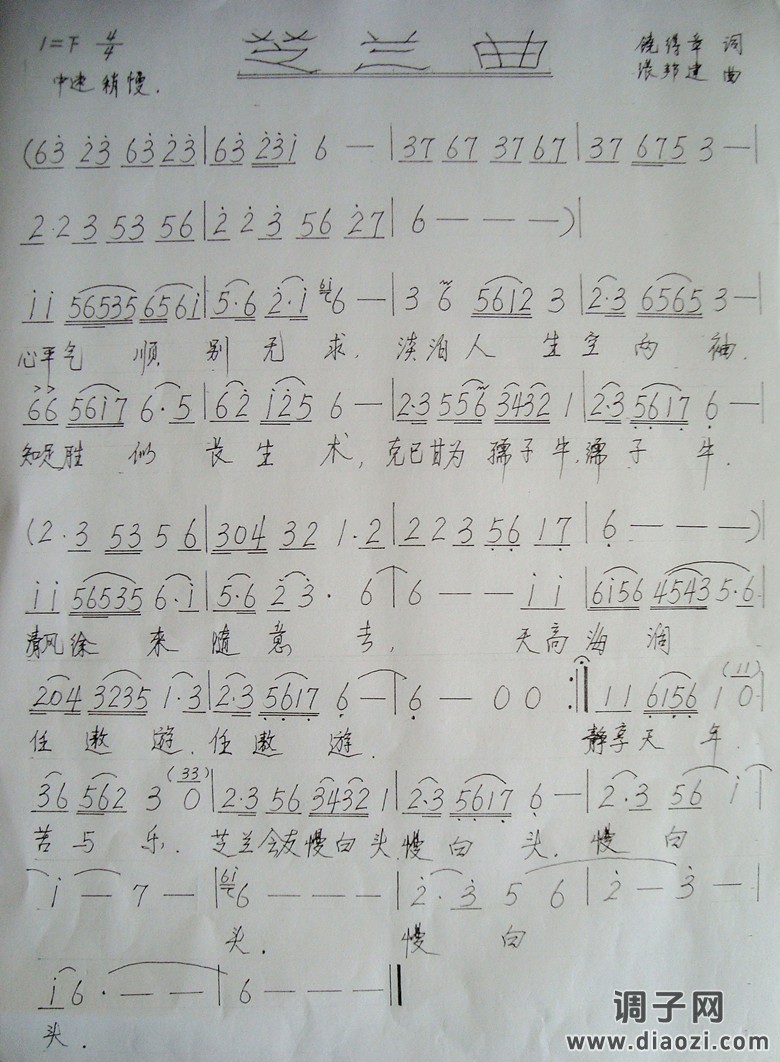 1=F 4/4 芝兰曲 饶得章 词
中速稍慢. 张邦建 曲
(63 23 63 23|63 231 6 —|37 67 37 67|37 675 3 —|
2·2 3 53 56|2 2 3 56 27|6 — — —)|
1 1 56535 6561|5·6 2·1 6 —|3 6 5612 3|2·3 6565 3 —|
心平气 顺 别 无 求. 淡泊人 生 空 两 袖.
> >
66 5617 6·5|62 125 6 —|2·3 556 3432 1|2·3 5617 6 —|
知足胜 似 长 生 术, 克己甘为 孺子牛.孺 子 牛.
(2·3 53 5 6|304 32 1·2|2 2 3 56 17|6 — — —)|
1 1 56535 6·1|5·6 2 3· 6|6 — — 1 1|6156 4543 5·6|
清风徐 来 随 意 去, 天高海 阔
204 3235 1·3|2·3 5617 6 —|6 — 0 0 :|| 1 1 6156 1 0 (11)|
任 遨 游. 任 遨 游. 静享天 年.
36 562 3 0 (33)|2·3 56 3432 1|2·3 5617 6 —|2·3 56 1|
苦 与 乐. 芝兰会友慢白头.慢 白 头. 慢 白
1 — 7 —|6 — — —|2·3 5 6|2 — 3 —|
头. 慢 白
1 6 · — —|6 — — —||
头.
调子网
www.diaozi.com